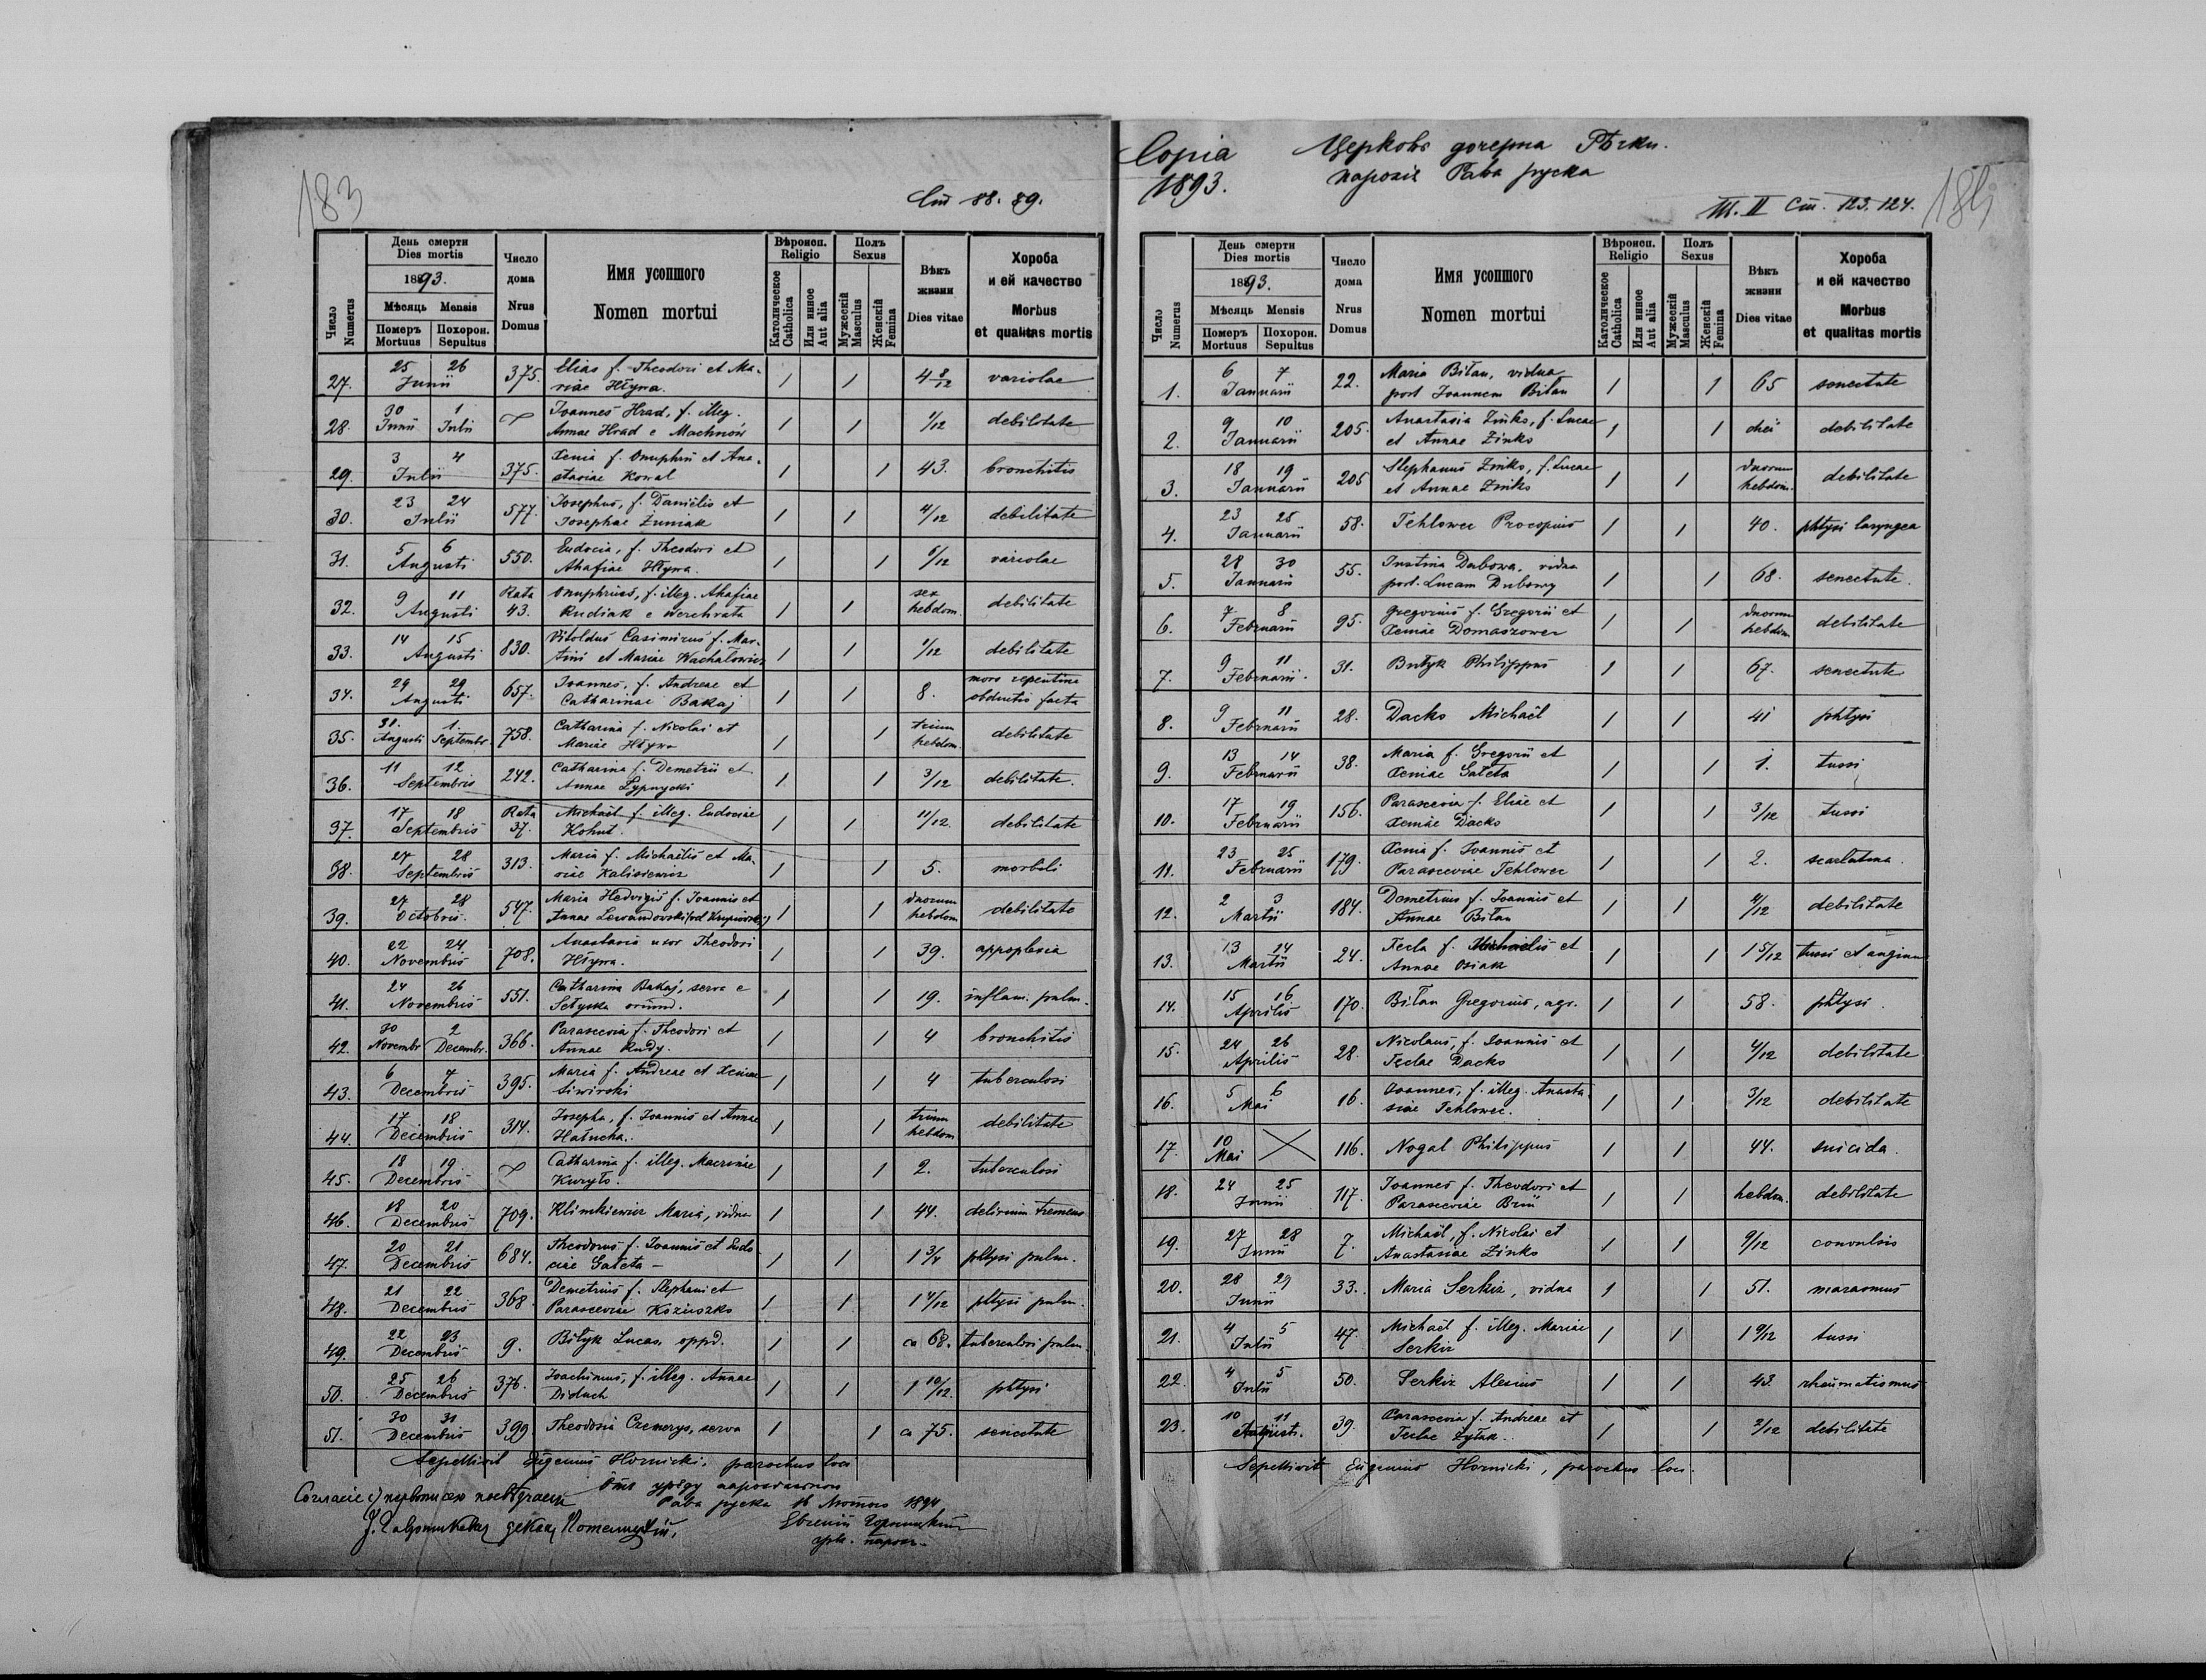 183
Ст 88. 89.
День смерти
Dies mortis
1893.
Мѣсяць Mensis
Число
Numerus
Померъ
Mortuus
Похорон.
Sepultus
Число
дома
Nrus
Domus
Имя усопшого
Nomen mortui
Вѣроисп.
Religio
Католическое
Catholica
Или инное
Aut alia
Полъ
Sexus
Мужескій
Masculus
Женскій
Femina
Вѣкъ
жизни
Dies vitae
Хороба
и ей качество
Morbus
et qualitas mortis
27. 25 26 Junii 375. Elias f. Theodori et Ma-
riae Hływa. 1 1 4 8/12 variolae
28. 30 Junii 1 Julii Joannes Hrad, f. illeg.
Annae Hrad e Machnów 1 1 1/12 debilitate
29. 3 4 Julii 375. Xenia f. Onuphrii et Ana-
stasiae Kowal 1 1 43. bronchitis
30. 23 24 Julii 577. Josephus, f. Danielis et
Josephae Zumak 1 1 4/12 debilitate
31. 5 6 Augusti 550. Eudocia, f. Theodori et
Ahafiae Hływa. 1 1 6/12 variolae
32. 9 11 Augusti Rata 43. Onuphrius, f. illeg. Ahafiae
Rudiak e Werchrata 1 1 sex hebdom. debilitate
33. 14 15 Augusti 830. Vitoldus Casimirus f. Mar-
tini et Mariae Wachałowicz 1 1 1/12 debilitate
34. 29 29 Augusti 657. Joannes, f. Andreae et
Catharinae Bakaj 1 1 8. mors repentina
obductis facta
35. 31. Augusti 1. Septembr. 758. Catharina f. Nicolai et
Mariae Hływa 1 1 trium hebdom. debilitate
36. 11 12 Septembris 242. Catharina f. Demetrii et
Annae Lypnycki 1 1 3/12 debilitate.
37. 17 18 Septembris Rata 37. Michaël f. illeg. Eudociae
Kohut. 1 1 11/12. debilitate
38. 27 28 Septembris 313. Maria f. Michaëlis et Ma-
riae Kalisiewicz 1 1 5. morbili
39. 27 28 Octobris. 547. Maria Hedvigis f. Joannis et
Annae Lewandowski 1 1 duorum hebdom debilitate
40. 22 24 Novembris 708. Anastasia uxor Theodori
Hływa. 1 1 39. appoplexia
41. 24 26 Novembris 551. Catharina Bakaj, serva e
Sełyska oriund. 1 1 19. inflam. pulm.
42. 30 Novembr 2 Decembr. 366. Parascevia f. Theodori et
Annae Rudy. 1 1 4 bronchitis
43. 6 7 Decembris 395. Maria f. Andreae et Xeniae
Siwirski 1 1 4 tuberculosi
44. 17 18 Decembris 314. Josepha, f. Joannis et Annae
Hałucha. 1 1 trium hebdom debilitate
45. 18 19 Decembris Catharina f. illeg. Macrinae
Kuryło. 1 1 2. tuberculosi
46. 18 20 Decembris 709. Klimkiewicz Maria, vidua 1 1 44. delirium tremens
47. 20 21 Decembris 684. Theodorus f. Joannis et Eudo-
ciae Gałeta - 1 1 1 3/4 phtysi pulm.
48. 21 22 Decembris 368. Demetrius f. Stephani et
Parasceviae Koziuszko 1 1 1 4/12 phtysi pulm.
49. 22 23 Decembris 9. Biłyk Lucas, oppd. 1 1 ca 68. tuberculosi pulm.
50. 25 26 Decembris 376. Joachimus, f. illeg. Annae
Diduch 1 1 1 10/12. phtysi
51. 30 31 Decembris 399 Theodosia Czemerys, serva 1 1 ca 75. senectute
Sepellivit Eugenius Hornicki, parochus loci
Отъ уряду парохіального
Рава руска 16 Лютого 1894
Евгеній Горницкій
Copia
1893.
Церковь дочерна Рѣчки.
парохія Рава руска
Т. II Ст. 123. 124.
184
День смерти
Dies mortis
1893.
Мѣсяць Mensis
Число
Numerus
Померъ
Mortuus
Похорон.
Sepultus
Число
дома
Nrus
Domus
Имя усопшого
Nomen mortui
Вѣроисп.
Religio
Католическое
Catholica
Или инное
Aut alia
Полъ
Sexus
Мужескій
Masculus
Женскій
Femina
Вѣкъ
жизни
Dies vitae
Хороба
и ей качество
Morbus
et qualitas mortis
1. 6 7 Januarii 22. Maria Biłan, vidua
post Joannem Biłan 1 1 65 senectute
2. 9 10 Januarii 205. Anastasia Zinko, f. Lucae
et Annae Zinko 1 1 diei debilitate
3. 18 19 Januarii 205 Stephanus Zinko, f. Lucae
et Annae Zinko 1 1 duorum hebdom. debilitate
4. 23 25 Januarii 58. Tehlowec Procopius 1 1 40. phtysi laryngea
5. 28 30 Januarii 55. Justina Dubowa, vidua
post. Lucam Dubowy 1 1 68. senectute.
6. 7 8 Februarii 95. Gregorius f. Gregorii et
Xeniae Domaszowec 1 1 duorum hebdom debilitate
7. 9 11 Februarii. 31. Butyk Philippus 1 1 67. senectute
8. 9 11 Februarii 28. Dacko Michaël 1 1 41 phtysi
9. 13 14 Februarii 38. Maria f. Gregorii et
Xeniae Gałeta 1 1 1. tussi
10. 17 19 Februarii 156. Parascevia f. Eliae et
Xeniae Dacko 1 1 3/12 tussi
11. 23 25 Februarii 179. Xenia f. Joannis et
Parasceviae Tehlowec 1 1 2. scarlatina.
12. 2 3 Martii 184. Demetrius f. Joannis et
Annae Biłan 1 1 4/12 debilitate
13. 13 14 Martii 24. Tecla f. Michaelis et
Annae Osiak 1 1 1 5/12 tussi et angina
14. 15 16 Aprilis 170. Biłan Gregorius, agr. 1 1 58. phtysi.
15. 24 26 Aprilis 28. Nicolaus, f. Joannis et
Teclae Dacko 1 1 4/12 debilitate
16. 5 6 Mai 16. Joannes, f. illeg. Anasta
siae Tehlowec. 1 1 3/12 debilitate
17. 10 Mai 116. Nogal Philippus 1 1 44. suicida.
18. 24 25 Junii 117. Joannes f. Theodori et
Parasceviae 1 1 hebdom. debilitate
19. 27 28 Junii 7. Michaël, f. Nicolai et
Anastasiae Zinko 1 1 9/12 convulsio
20. 28 29 Junii 33. Maria Serkiz, vidua 1 1 51. marasmus
21. 4 5 Julii 47. Michaël f. illeg. Mariae
Serkiz 1 1 1 9/12 tussi
22. 4 5 Julii 50. Serkiz Alexius 1 1 43. rheumatismus
23. 10 11 Augusti. 39. Parascevia f. Andreae et
Teclae Zyłak. 1 1 2/12 debilitate
Sepellivit Eugenius Hornicki, parochus loci.